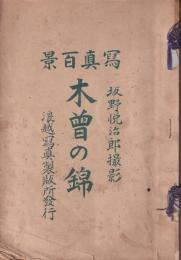 寫真百景
坂野悦治郎撮影
木曽の錦
浪越寫真製版所發行